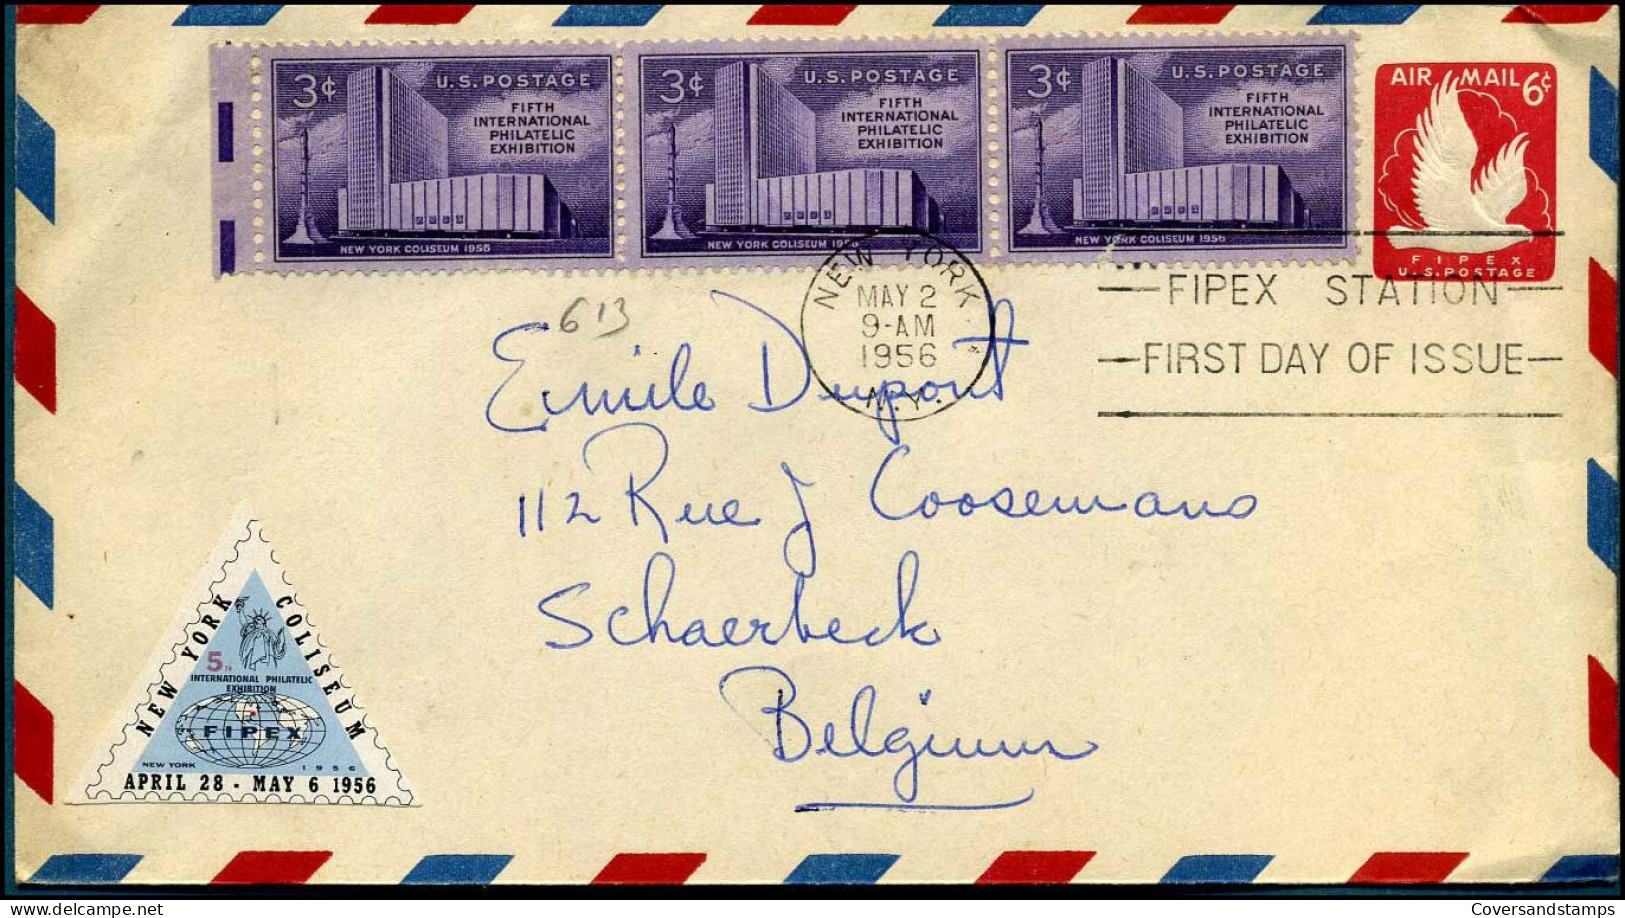 3¢ U.S. POSTAGE
FIFTH
INTERNATIONAL
PHILATELIC
EXHIBITION
NEW YORK COLISEUM 1956
3¢ U.S. POSTAGE
FIFTH
INTERNATIONAL
PHILATELIC
EXHIBITION
NEW YORK COLISEUM 1956
3¢ U.S. POSTAGE
FIFTH
INTERNATIONAL
PHILATELIC
EXHIBITION
NEW YORK COLISEUM 1956
AIR MAIL 6¢
FIPEX
U.S. POSTAGE
NEW YORK
MAY 2
9-AM
1956
N.Y.
FIPEX STATION
FIRST DAY OF ISSUE
613
Emile Dupont
112 Rue J Coosemans
Schaerbeck
Belgium
NEW YORK COLISEUM
5TH
INTERNATIONAL PHILATELIC
EXHIBITION
FIPEX
NEW YORK 1956
APRIL 28 - MAY 6 1956
Coversandstamps